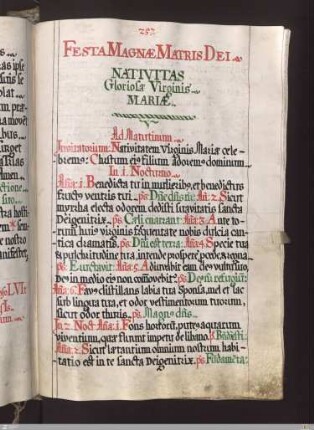 257.
FESTA MAGNÆ MATRIS DEI
NATIVITAS
Gloriosæ Virginis
MARIÆ
Ad Matutinum
Invitatorium: Nativitatem Virginis Mariæ cele-
bremus: Christum ejus filium adoremus dominum
In 1. Nocturno
Aña: 1. Benedicta tu in mulieribus, et benedictus
fructus ventris tui. ps: Añ: 2. Sicut
myrrha electa odorem dedisti suavitatis sancta
Dei genitrix. ps: Celi enarrant. Añ: 3. Ante to-
rum hujus virginis frequentate nobis dulcia can-
tica dramatis. ps: Dñi est terra. Aña: 4. Specie tua
et pulchritudine tua intende prospere procede, et regna.
ps: Eructavit. Aña: 5. Adjuvabit eam deus vultu suo,
deus in medio ejus non commovebitur. ps: Deus nr refugiū.
Aña: 6. Favus distillans labia tua Sponsa, mel et lac
sub lingua tua, et odor vestimentorum tuorum,
sicut odor thuris. ps: Magnus dñs.
In 2. Noct: Aña: 1. Fons hortorū, puteus aquarum
viventium, quæ fluunt impetu de libano.
Aña: 2. Sicut lætantium omnium nostrum habi-
tatio est in te sancta Dei genitrix. ps: Fūdamēta: